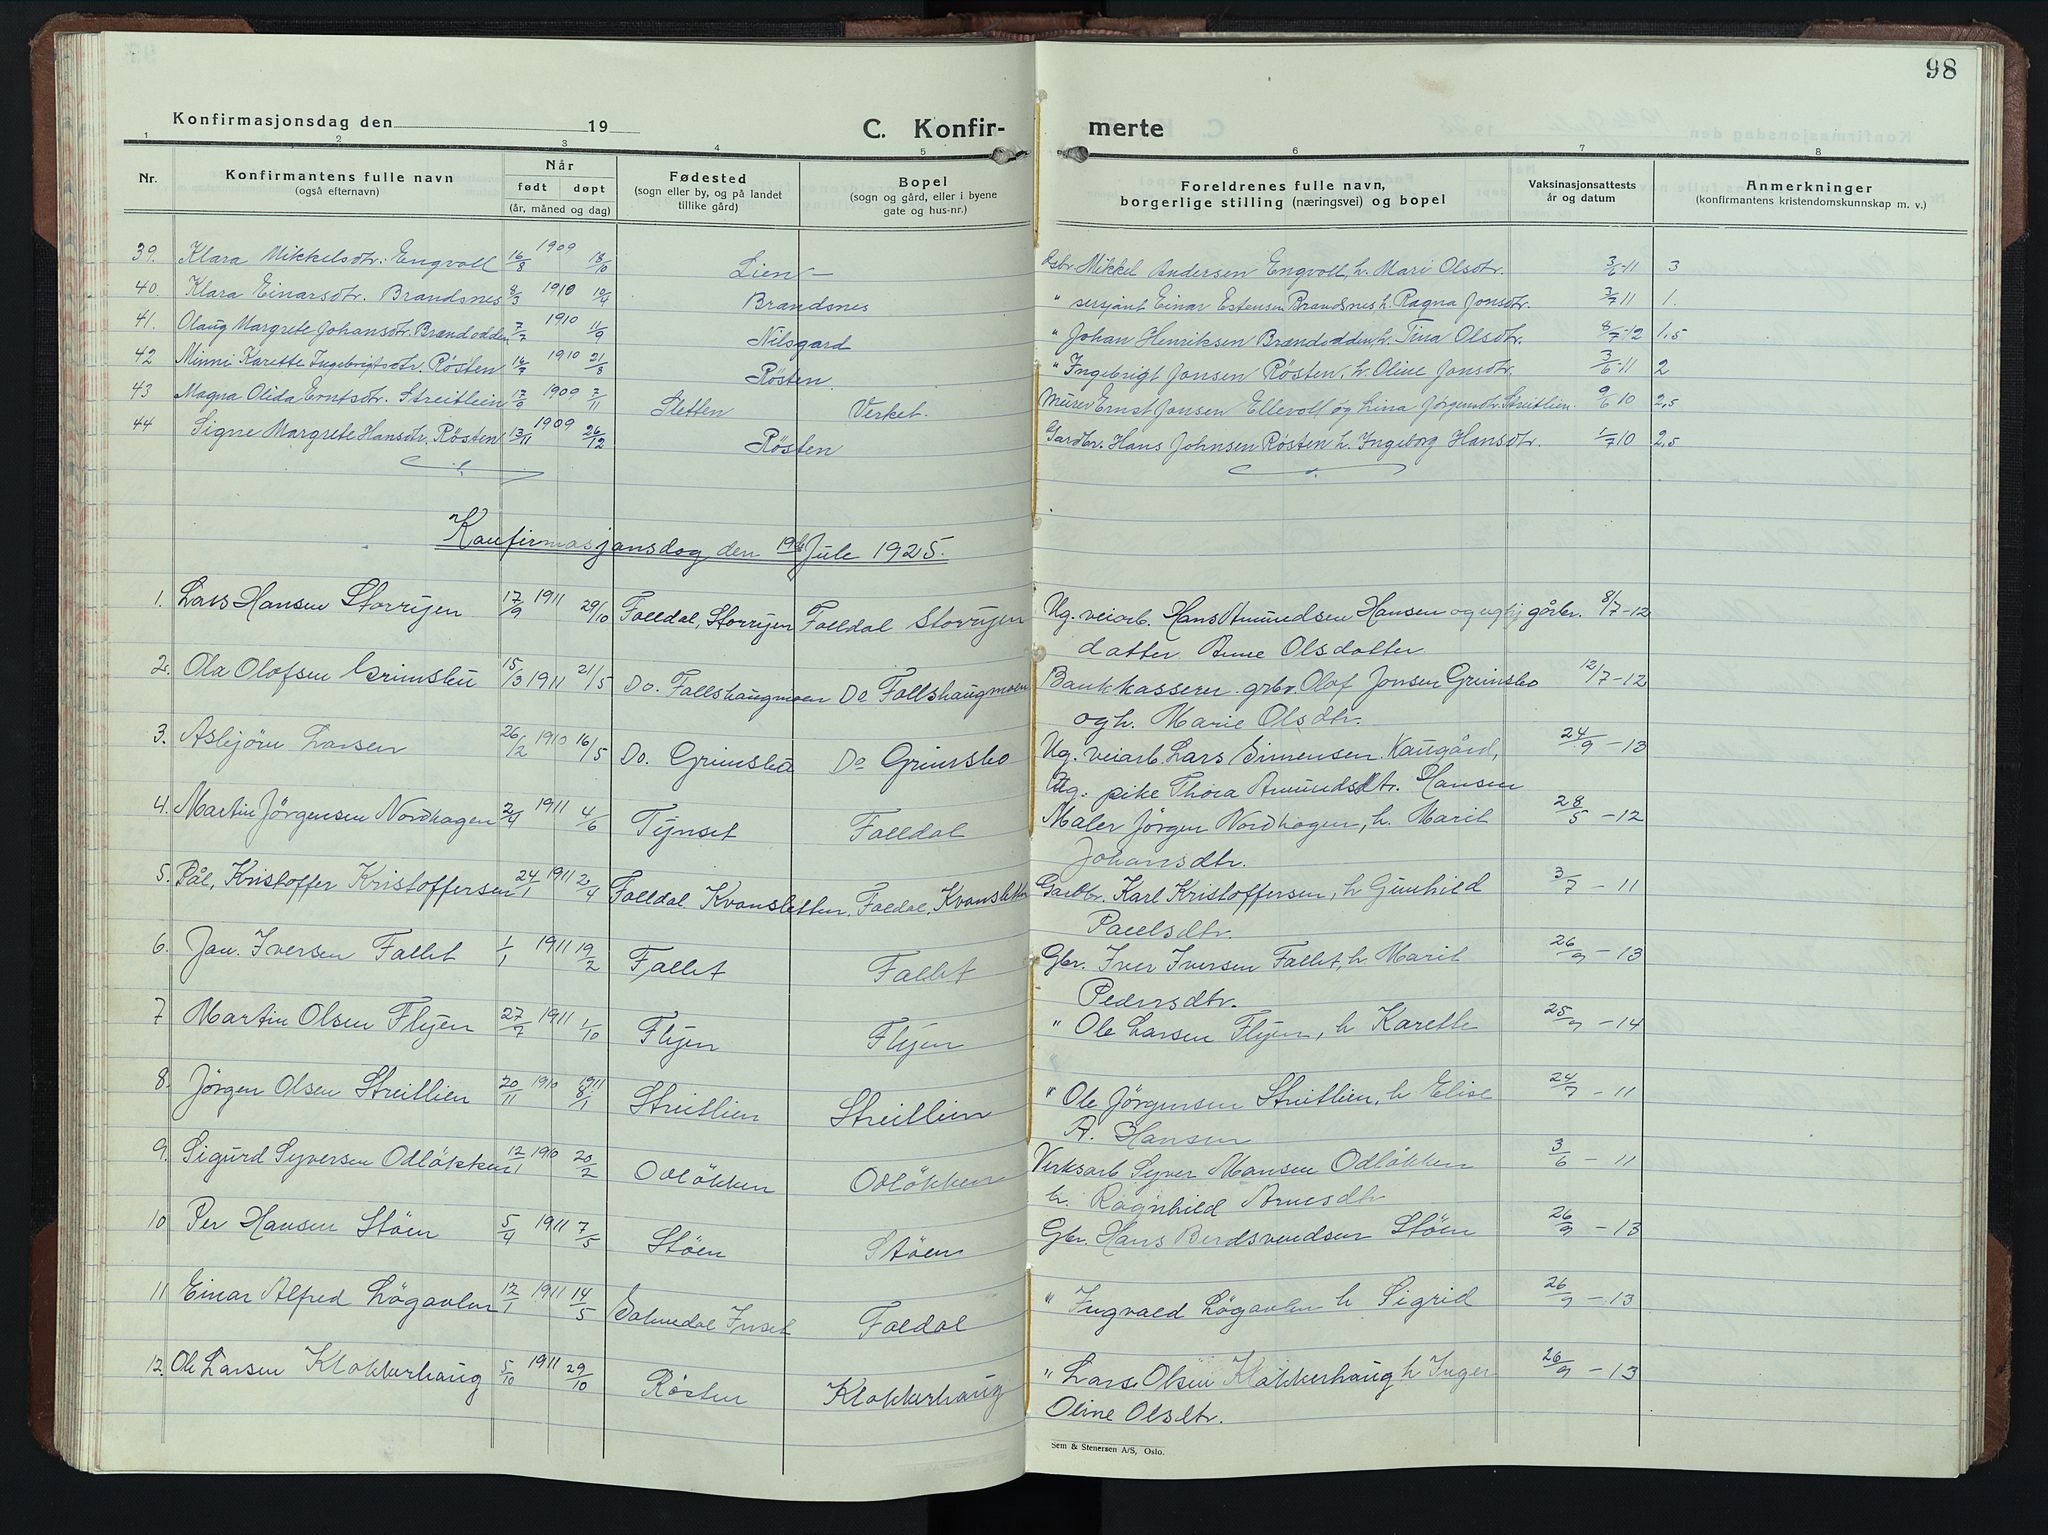 98
Konfirmasjonsdag den 19
C. Konfir- merte
1 2 3 4 5 6 7 8
Nr. Konfirmantens fulle navn (også efternavn) Når født døpt (år, måned og dag) Fødested (sogn eller by, og på landet tillike gård) Bopel (sogn og gård, eller i byene gate og hus-nr.) Foreldrenes fulle navn, borgerlige stilling (næringsvei) og bopel Vaksinasjonsattests år og datum Anmerkninger (konfirmantens kristendomskunnskap m. v.)
39. Klara Mikkelsdtr. Engvoll 16/8 1909 18/10 Lien - Gbr Mikkel Andersen Engvoll, h. Mari Olsdtr. 3/6-11 3
40. Klara Einarsdtr. Brandsnes 8/3 1910 10/4 Brandsnes " sersjant Einar Estensen Brandsnes h. Ragna Jonsdtr. 3/7 11 1.
41. Olaug Margrete Johansdtr. Brændodden 7/7 1910 11/9 Nilsgard " Johan Henriksen Brændodden, h. Tina Olsdtr. 8/7-12 1,5
42 Minni Karette Ingebrigtsdtr. Røsten 16/7 1910 21/8 Røsten " Ingebrigt Jonsen Røsten, h. Oline Jonsdtr. 3/6-11 2
43 Magna Olida Ernstsdtr. Streitlein 17/9 1909 7/11 Sletten Verket. Murer Ernst Jonsen Ellevoll og Lina Jørgensdtr. Streitlien. 9/6 10 2,5
44 Signe Margrete Hansdtr. Røsten 13/11 1909 26/12 Røsten Gardbr. Hans Johnsen Røsten h. Ingeborg Hansdtr. 1/7 10 2,5
Konfirmasjonsdag den 19de Jule 1925.
1. Lars Hansen Storrijen 17/9 1911 29/10 Folldal, Storrijen Folldal Storrijen Ug. veiarb. Hans Amundsen Hansen og ug. gårbr. 8/7-12
datter Anne Olsdatter
2. Ola Olofsen Grimsbu 15/3 1911 21/5 Do. Follshaugmoen Do Follshaugmoen Bankkasserer grbr. Olof Jonsen Grimsbo 12/7-12
og h. Marie Olsdtr.
3. Asbjørn Larsen 26/2 1910 16/5 Do. Grimsbu Do Grimsbo Ug. veiarb. Lars Simensen Kaugård, 24/9-13
Ug. pike Thora Amundsdtr. Hansen
4. Martin Jørgensen Nordhagen 2/4 1911 4/6 Tynset Folldal Maler Jørgen Nordhagen, h. Marit 28/5-12
Johansdtr.
5. Pål, Kristoffer Kristoffersen 24/1 1911 2/4 Folldal Kvansletten, Foldal, Kvansletten Gardbr. Karl Kristoffersen, h Gunhild 3/7-11
Paulsdtr.
6. Jan. Iversen Fallet 1/1 1911 19/2 Fallet Fallet Gbr. Iver Iversen Fallet, h Marit 26/9-13
Pedersdtr.
7 Martin Olsen Flyen 27/7 1911 1/10 Flyen Flyen " Ole Larsen Flyen, h Karette 25/9-14
8. Jørgen Olsen Streitlien 20/11 1910 1911 8/1 Streitlien Streitlien " Ole Jørgensen Streitlien, h Elise 24/7-11
A. Hansen
9. Sigurd Syversen Odløkken 12/1 1910 20/2 Odløkken Odløkken Verksarb Syver Hansen Odløkken 3/6-11
h. Ragnhild Arnesdtr
10 Per Hansen Støen 5/4 1911 7/5 Støen Støen Gbr. Hans Berdsvendsen Støen 26/9-13
11 Einar Alfred Løgavlen 12/1 1911 14/5 Inset Foldal " Ingvald Løgavlen h Sigrid 26/9-13
12. Ole Larsen Klokkerhaug 5/10 1911 29/10 Røsten Klokkerhaug " Lars Olsen Klokkerhaug h Inger 26/9-13
Oline Olsdtr.
Sem & Stenersen A/S, Oslo.